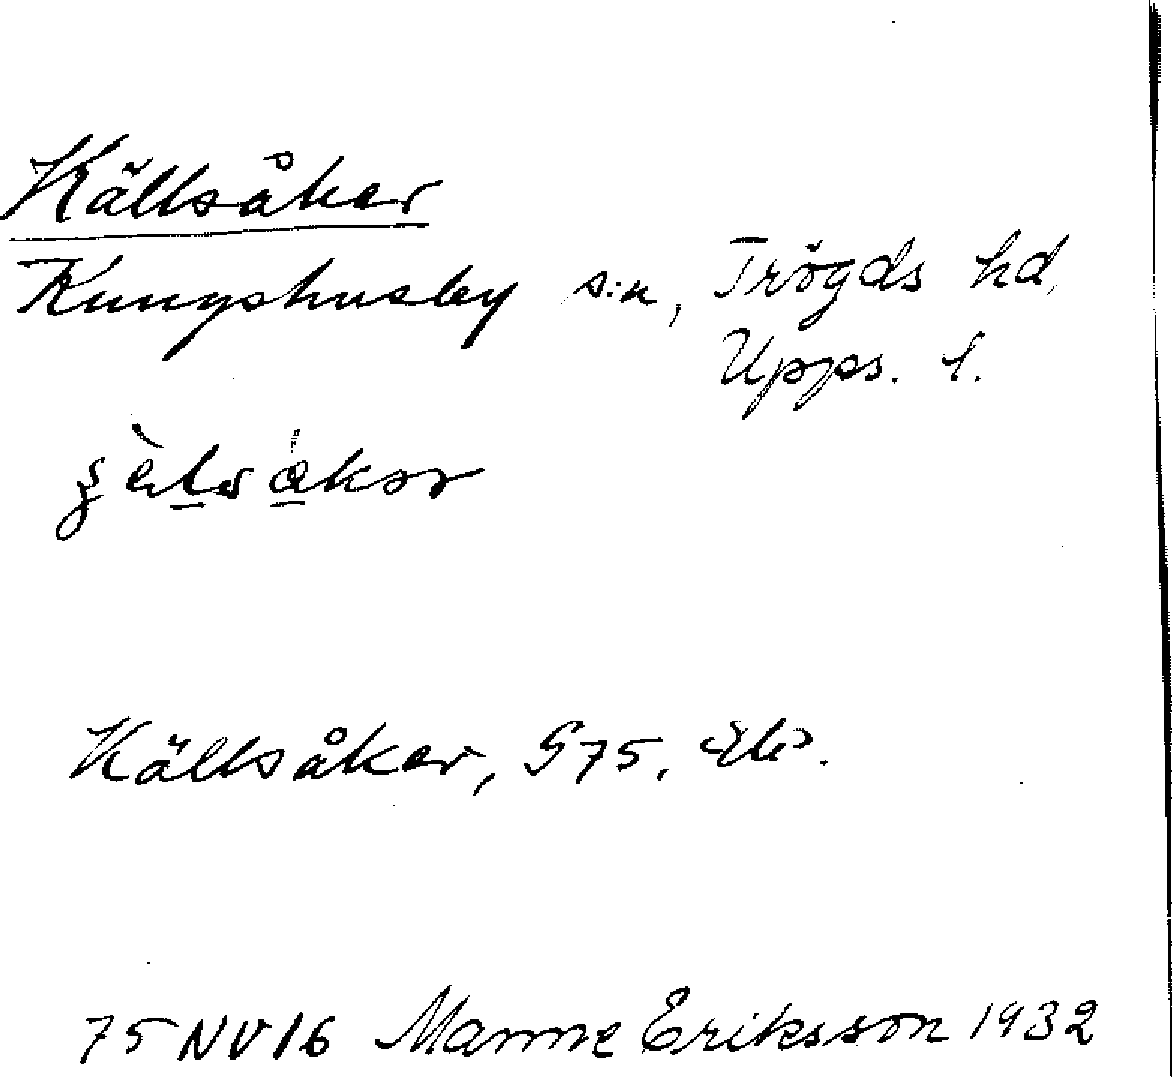 Källsåker
Kungshusby s:n, Trögds hd,
Upps. l.
Källsåker, G75,
75 NV 16 Manne Eriksson 1932